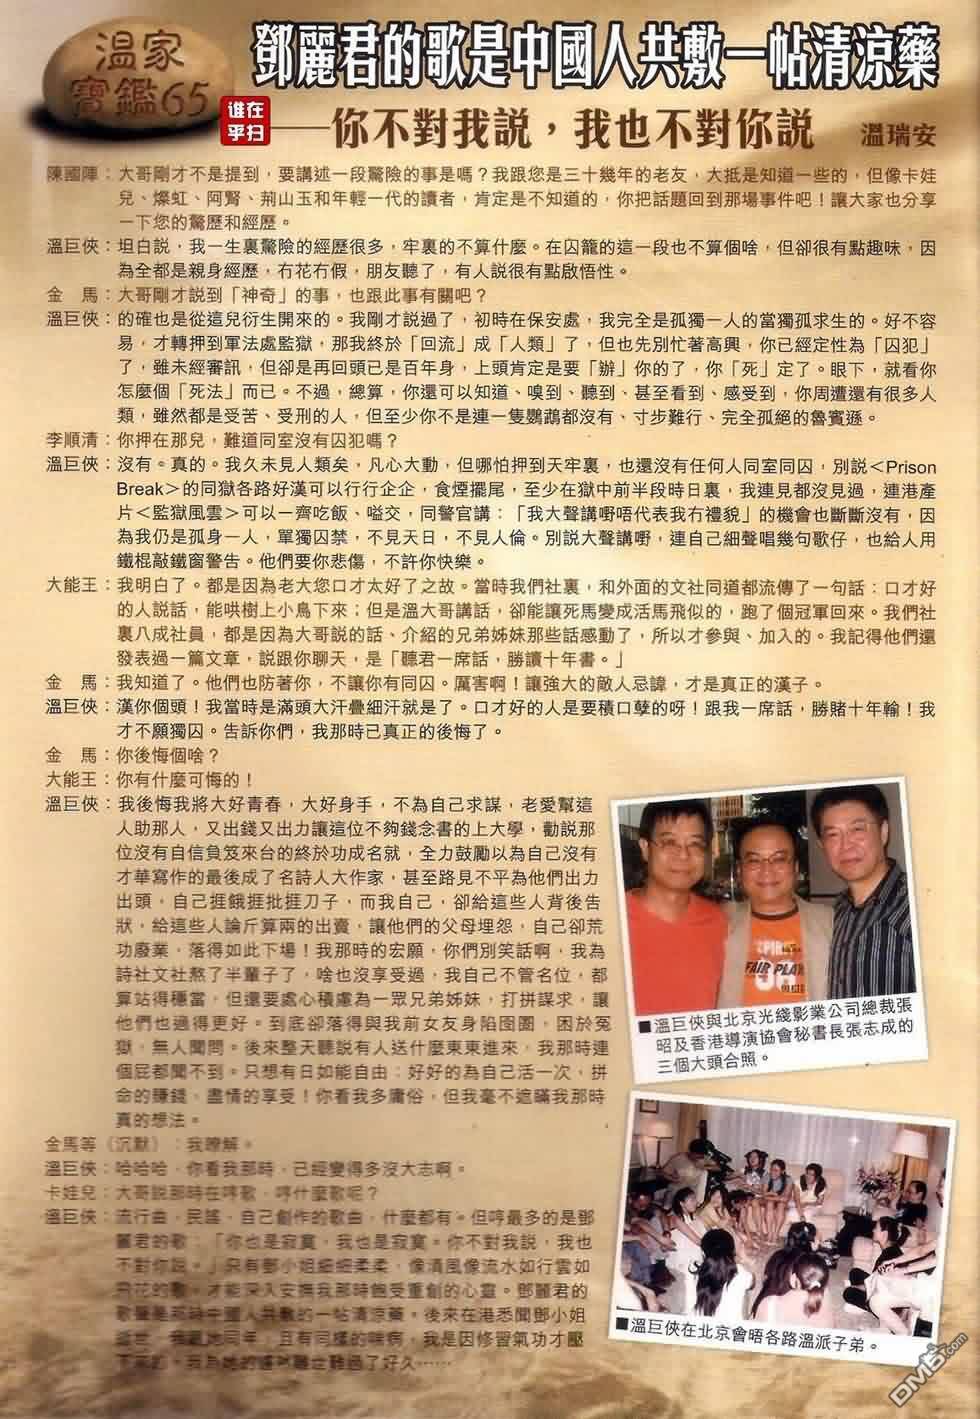 溫家
寶鑑65
鄧麗君的歌是中國人共敷一帖清涼藥
誰在
乎扫
——你不對我説，我也不對你説　溫瑞安
陳國陣：大哥剛才不是提到，要講述一段驚險的事是嗎？我跟您是三十幾年的老友，大抵是知道一些的，但像卡娃
兒、燦虹、阿腎、荊山玉和年輕一代的讀者，肯定是不知道的，你把話題回到那場事件吧！讓大家也分享
一下您的驚歷和經歷。
溫巨俠：坦白説，我一生裏驚險的經歷很多，牢裏的不算什麼。在囚籠的這一段也不算個啥，但卻很有點趣味，因
為全都是親身經歷，冇花冇假，朋友聽了，有人説很有點啟悟性。
金　馬：大哥剛才説到「神奇」的事，也跟此事有關吧？
溫巨俠：的確也是從這兒衍生開來的。我剛才説過了，初時在保安處，我完全是孤獨一人的當獨孤求生的。好不容
易，才轉押到軍法處監獄，那我終於「回流」成「人類」了，但也先別忙著高興，你已經定性為「囚犯」
了，雖未經審訊，但卻是再回頭已是百年身，上頭肯定是要「辦」你的了，你「死」定了。眼下，就看你
怎麼個「死法」而已。不過，總算，你還可以知道、嗅到、聽到、甚至看到、感受到，你周遭還有很多人
類，雖然都是受苦、受刑的人，但至少你不是連一隻鸚鵡都沒有、寸步難行、完全孤絕的魯賓遜。
李順清：你押在那兒，難道同室沒有囚犯嗎？
溫巨俠：沒有。真的。我久未見人類矣，凡心大動，但哪怕押到天牢裏，也還沒有任何人同室同囚，別説＜Prison
Break＞的同獄各路好漢可以行行企企，食煙擺尾，至少在獄中前半段時日裏，我連見都沒見過，連港產
片＜監獄風雲＞可以一齊吃飯、嗌交，同警官講：「我大聲講嘢唔代表我冇禮貌」的機會也斷斷沒有，因
為我仍是孤身一人，單獨囚禁，不見天日，不見人倫。別説大聲講嘢，連自己細聲唱幾句歌仔，也給人用
鐵棍敲鐵窗警告。他們要你悲傷，不許你快樂。
大能王：我明白了。都是因為老大您口才太好了之故。當時我們社裏，和外面的文社同道都流傳了一句話：口才好
的人説話，能哄樹上小鳥下來；但是溫大哥講話，卻能讓死馬變成活馬飛似的，跑了個冠軍回來。我們社
裏八成社員，都是因為大哥説的話、介紹的兄弟姊妹那些話感動了，所以才參與、加入的。我記得他們還
發表過一篇文章，説跟你聊天，是「聽君一席話，勝讀十年書。」
金　馬：我知道了。他們也防著你，不讓你有同囚。厲害啊！讓強大的敵人忌諱，才是真正的漢子。
溫巨俠：漢你個頭！我當時是滿頭大汗疊細汗就是了。口才好的人是要積口孽的呀！跟我一席話，勝賭十年輸！我
才不願獨囚。告訴你們，我那時已真正的後悔了。
金　馬：你後悔個啥？
大能王：你有什麼可悔的！
溫巨俠：我後悔我將大好青春，大好身手，不為自己求謀，老愛幫這
人助那人，又出錢又出力讓這位不夠錢念書的上大學，勸説那
位沒有自信負笈來台的終於功成名就，全力鼓勵以為自己沒有
才華寫作的最後成了名詩人大作家，甚至路見不平為他們出力
出頭，自己捱餓捱批捱刀子，而我自己，卻給這些人背後告
狀，給這些人論斤算兩的出賣，讓他們的父母埋怨，自己卻荒
功廢業，落得如此下場！我那時的宏願，你們別笑話啊，我為
詩社文社熬了半輩子了，啥也沒享受過，我自己不管名位，都
算站得穩當，但還要處心積慮為一眾兄弟姊妹，打拼謀求，讓
他們也過得更好。到底卻落得與我前女友身陷囹圄，困於冤
獄，無人聞問。後來整天聽説有人送什麼東東進來，我那時連
個屁都聞不到。只想有日如能自由：好好的為自己活一次，拼
命的賺錢，盡情的享受！你看我多庸俗，但我毫不遮瞞我那時
真的想法。
金馬等（沉默）：我瞭解。
溫巨俠：哈哈哈，你看我那時，已經變得多沒大志啊。
卡娃兒：大哥説那時在哼歌，哼什麼歌呢？
溫巨俠：流行曲，民謠，自己創作的歌曲，什麼都有。但哼最多的是鄧
麗君的歌：「你也是寂寞，我也是寂寞。你不對我説，我也
不對你説。」只有鄧小姐細細柔柔，像清風像流水如行雲如
飛花的歌，才能深入安撫我那時飽受重創的心靈。鄧麗君的
歌聲是那時中國人共敷的一帖清涼藥。後來在港悉聞鄧小姐
逝世，我跟她同年，且有同樣的哮病，我是因修習氣功才壓
下來的，我為她的遽然離世難過了好久……
■溫巨俠與北京光綫影業公司總裁張
昭及香港導演協會秘書長張志成的
三個大頭合照。
■溫巨俠在北京會晤各路溫派子弟。
DM5.com